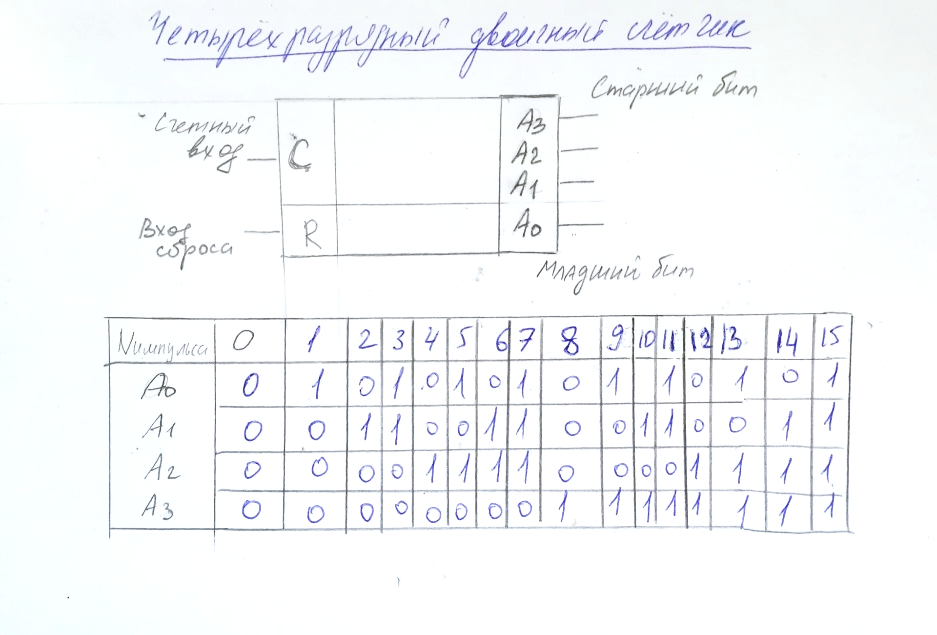 Четырёхразрядный двоичный счётчик
Старший бит
Счетный
вход
C
A3
A2
A1
A0
Вход
сброса
R
Младший бит
Nимпульса 0 1 2 3 4 5 6 7 8 9 10 11 12 13 14 15
A0 0 1 0 1 0 1 0 1 0 1 1 0 1 0 1
A1 0 0 1 1 0 0 1 1 0 0 1 1 0 0 1 1
A2 0 0 0 0 1 1 1 1 0 0 0 0 1 1 1 1
A3 0 0 0 0 0 0 0 0 1 1 1 1 1 1 1 1